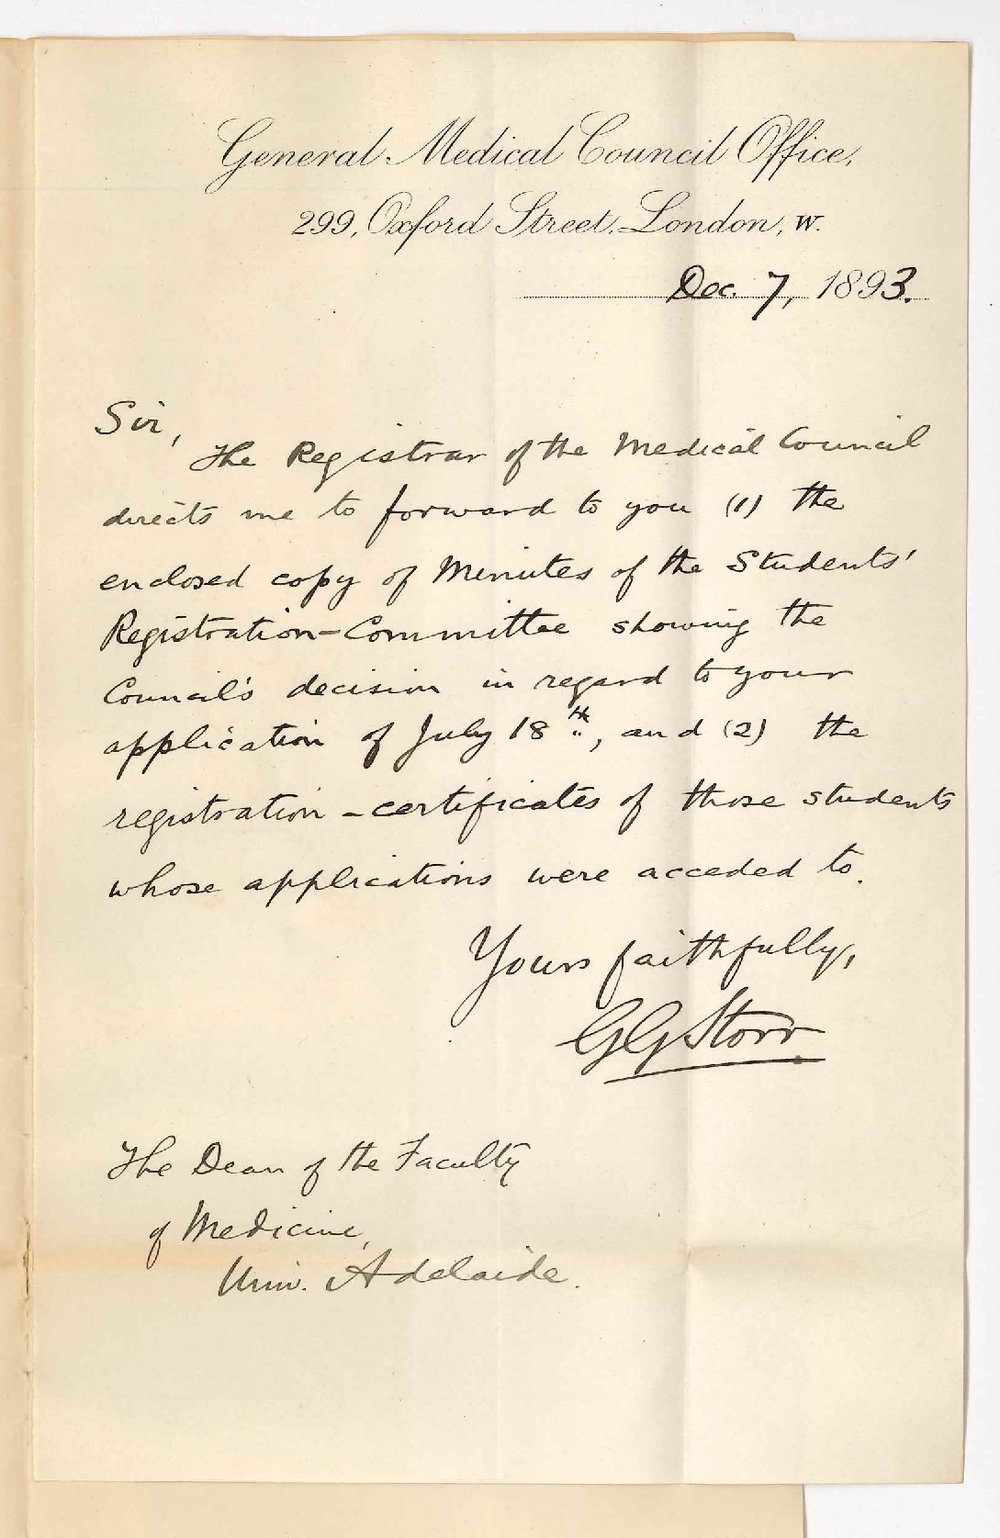 General Medical Council Office,
299, Oxford Street, London, W.
Dec. 7, 1893.
Sir,
The Registrar of the Medical Council
directs me to forward to you (1) the
enclosed copy of Minutes of the Students'
Registration-Committee showing the
Council's decision in regard to your
application of July 18th, and (2) the
registration-certificates of those students
whose applications were acceded to.
Yours faithfully,
GG Storr
The Dean of the Faculty
of Medicine,
Univ. Adelaide.